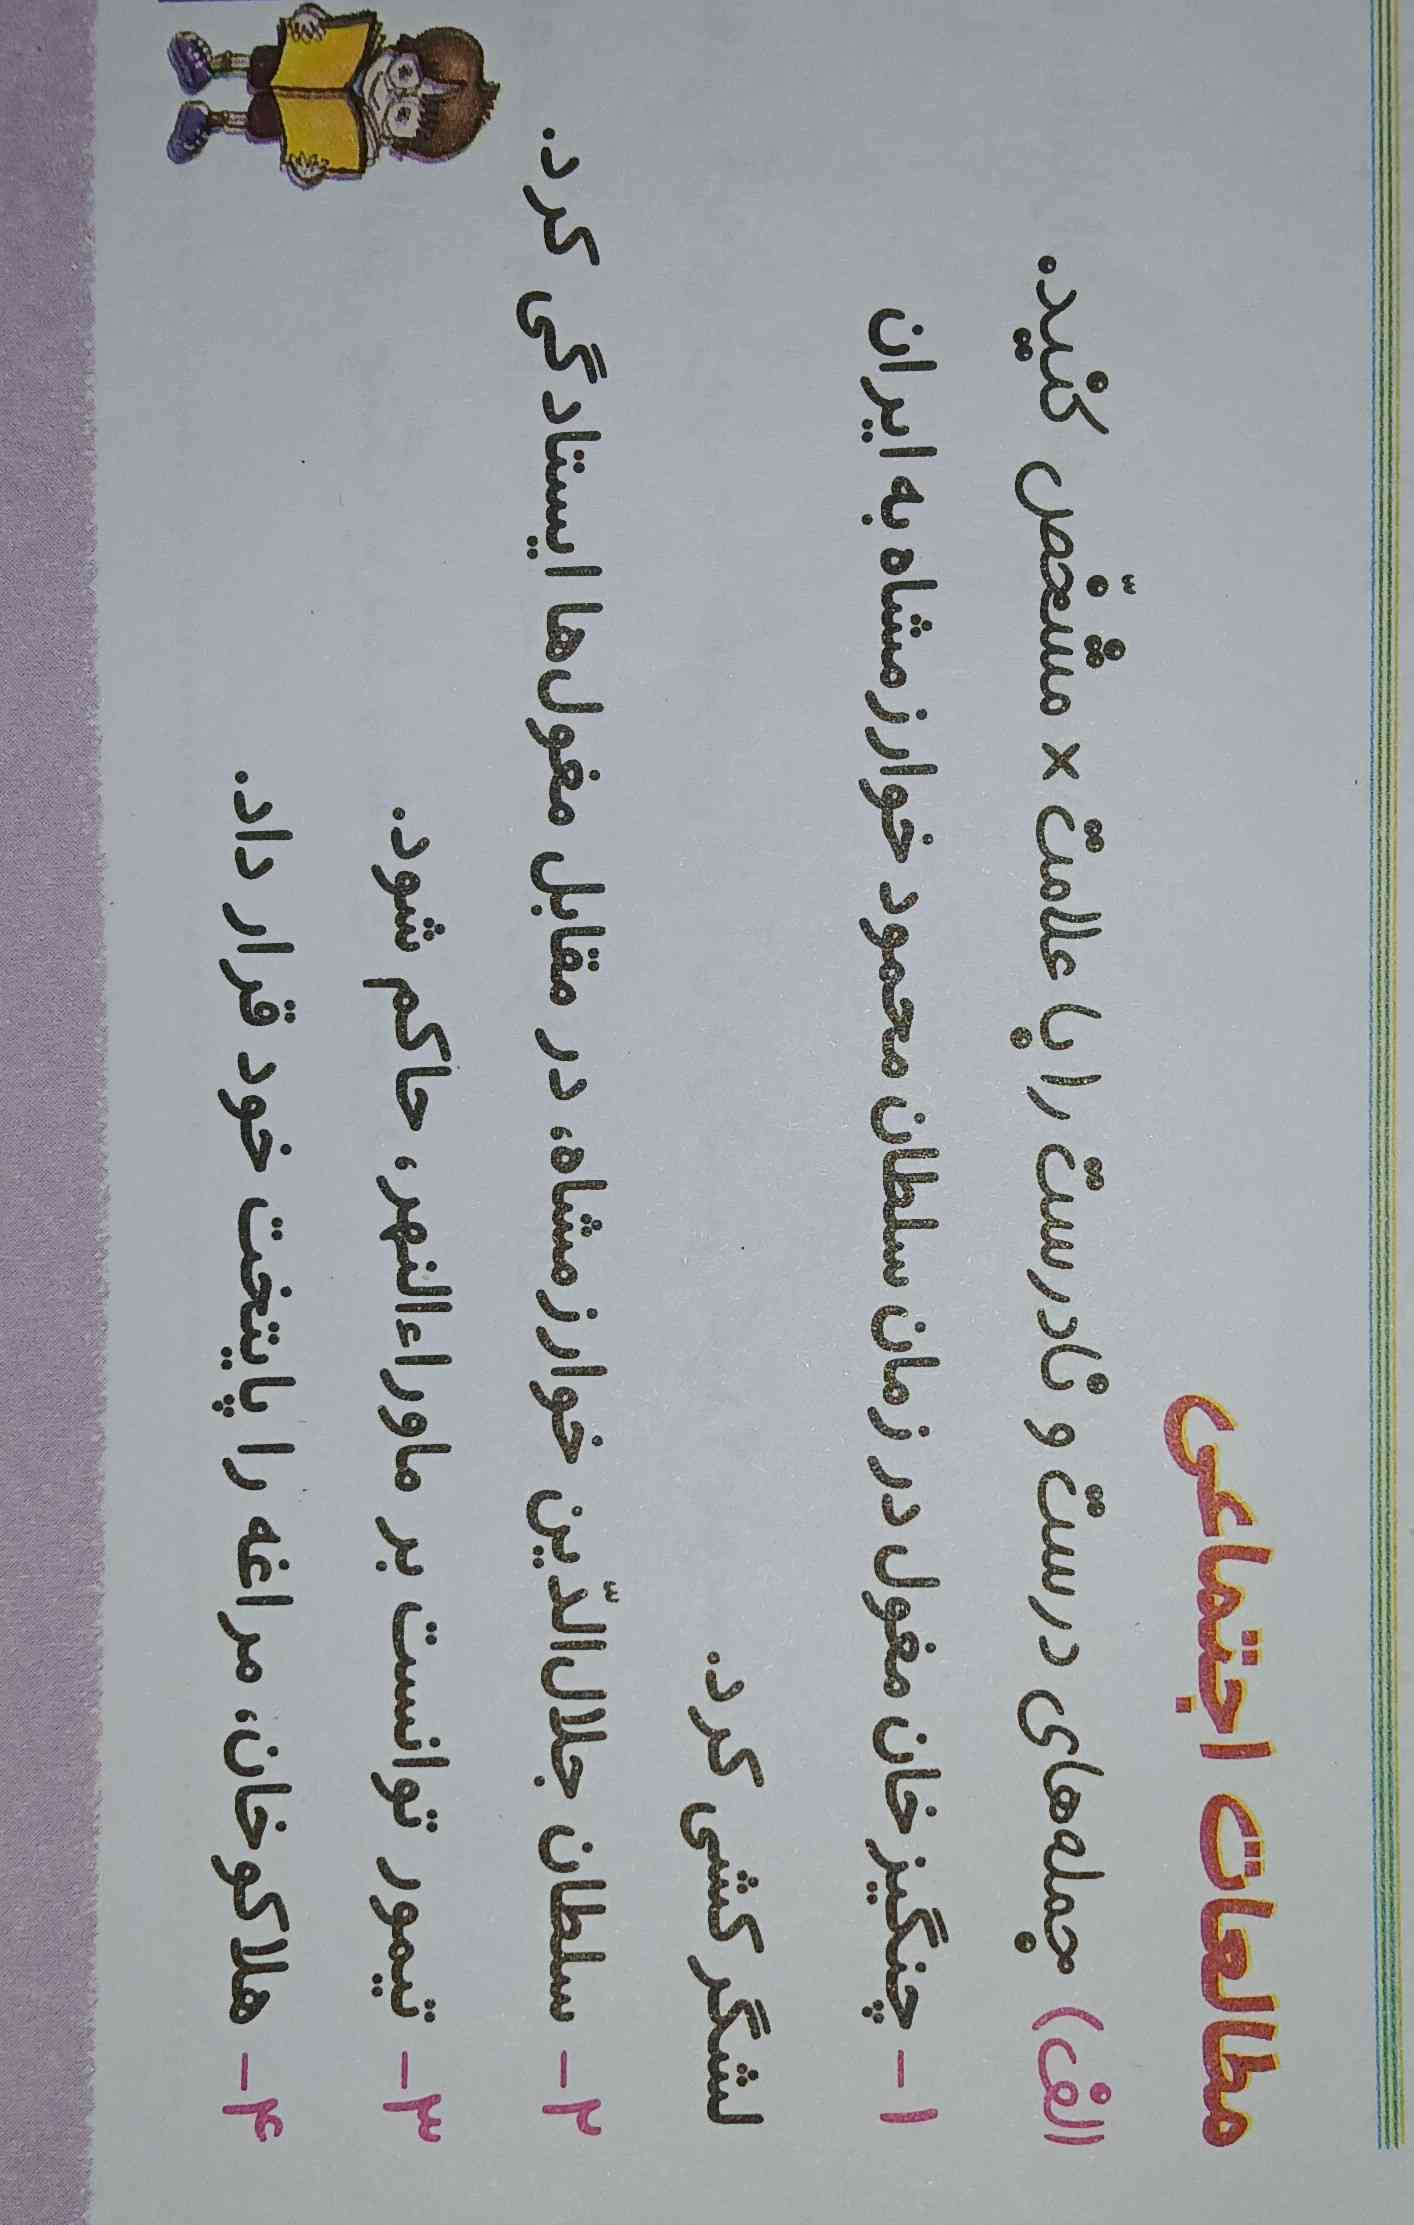 مطالعات اجتماعی
الف) جمله‌های درست و نادرست را با علامت × مشّخص کنید.
۱- چنگیز خان مغول در زمان سلطان محمود خوارزمشاه به ایران
لشگر کشی کرد.
۲- سلطان جلال‌الدّین خوارزمشاه، در مقابل مغول‌ها ایستادگی کرد.
۳- تیمور توانست بر ماوراءالنهر، حاکم شود.
۴- هلاکو خان، مراغه را پایتخت خود قرار داد.